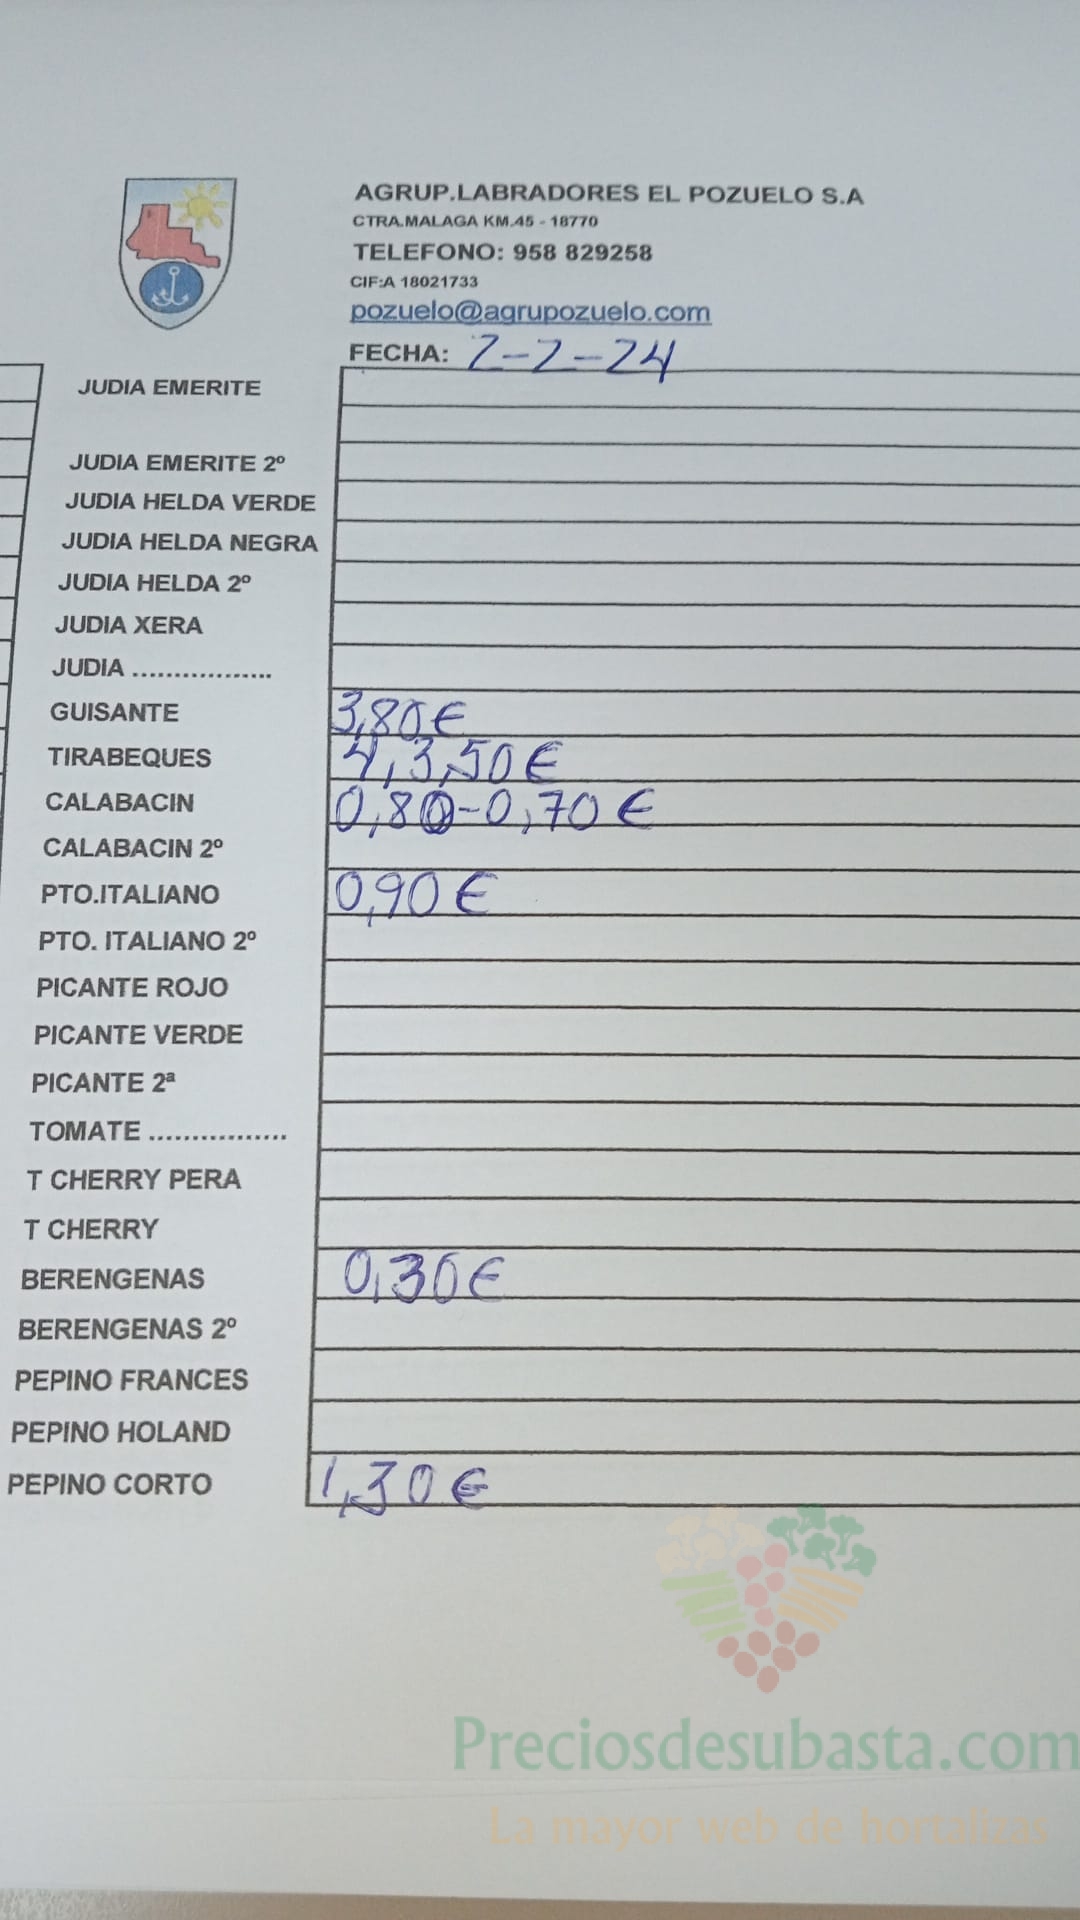 AGRUP.LABRADORES EL POZUELO S.A
CTRA.MALAGA KM.45 - 18770
TELEFONO: 958 829258
CIF:A 18021733
pozuelo@agrupozuelo.com
FECHA: 2-2-24
JUDIA EMERITE
JUDIA EMERITE 2º
JUDIA HELDA VERDE
JUDIA HELDA NEGRA
JUDIA HELDA 2º
JUDIA XERA
JUDIA .................
GUISANTE 3,80€
TIRABEQUES 4,3,50€
CALABACIN 0,80-0,70€
CALABACIN 2º
PTO.ITALIANO 0,90€
PTO. ITALIANO 2º
PICANTE ROJO
PICANTE VERDE
PICANTE 2ª
TOMATE .................
T CHERRY PERA
T CHERRY
BERENGENAS 0,30€
BERENGENAS 2º
PEPINO FRANCES
PEPINO HOLAND
PEPINO CORTO 1,30€
Preciosdesubasta.com
La mayor web de hortalizas